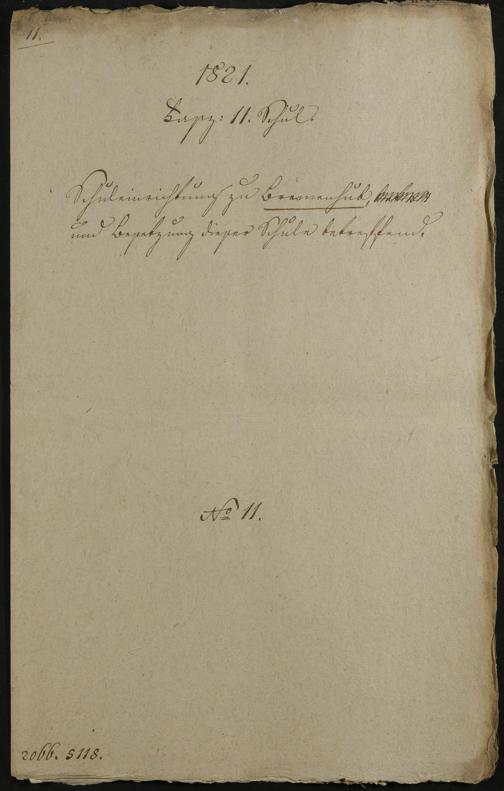 11.
1821.
11. Schul.
Schuleinrichtung zu Bremenhub,
und Besetzung dieser Schule betreffend.
No 11.
2066. S118.